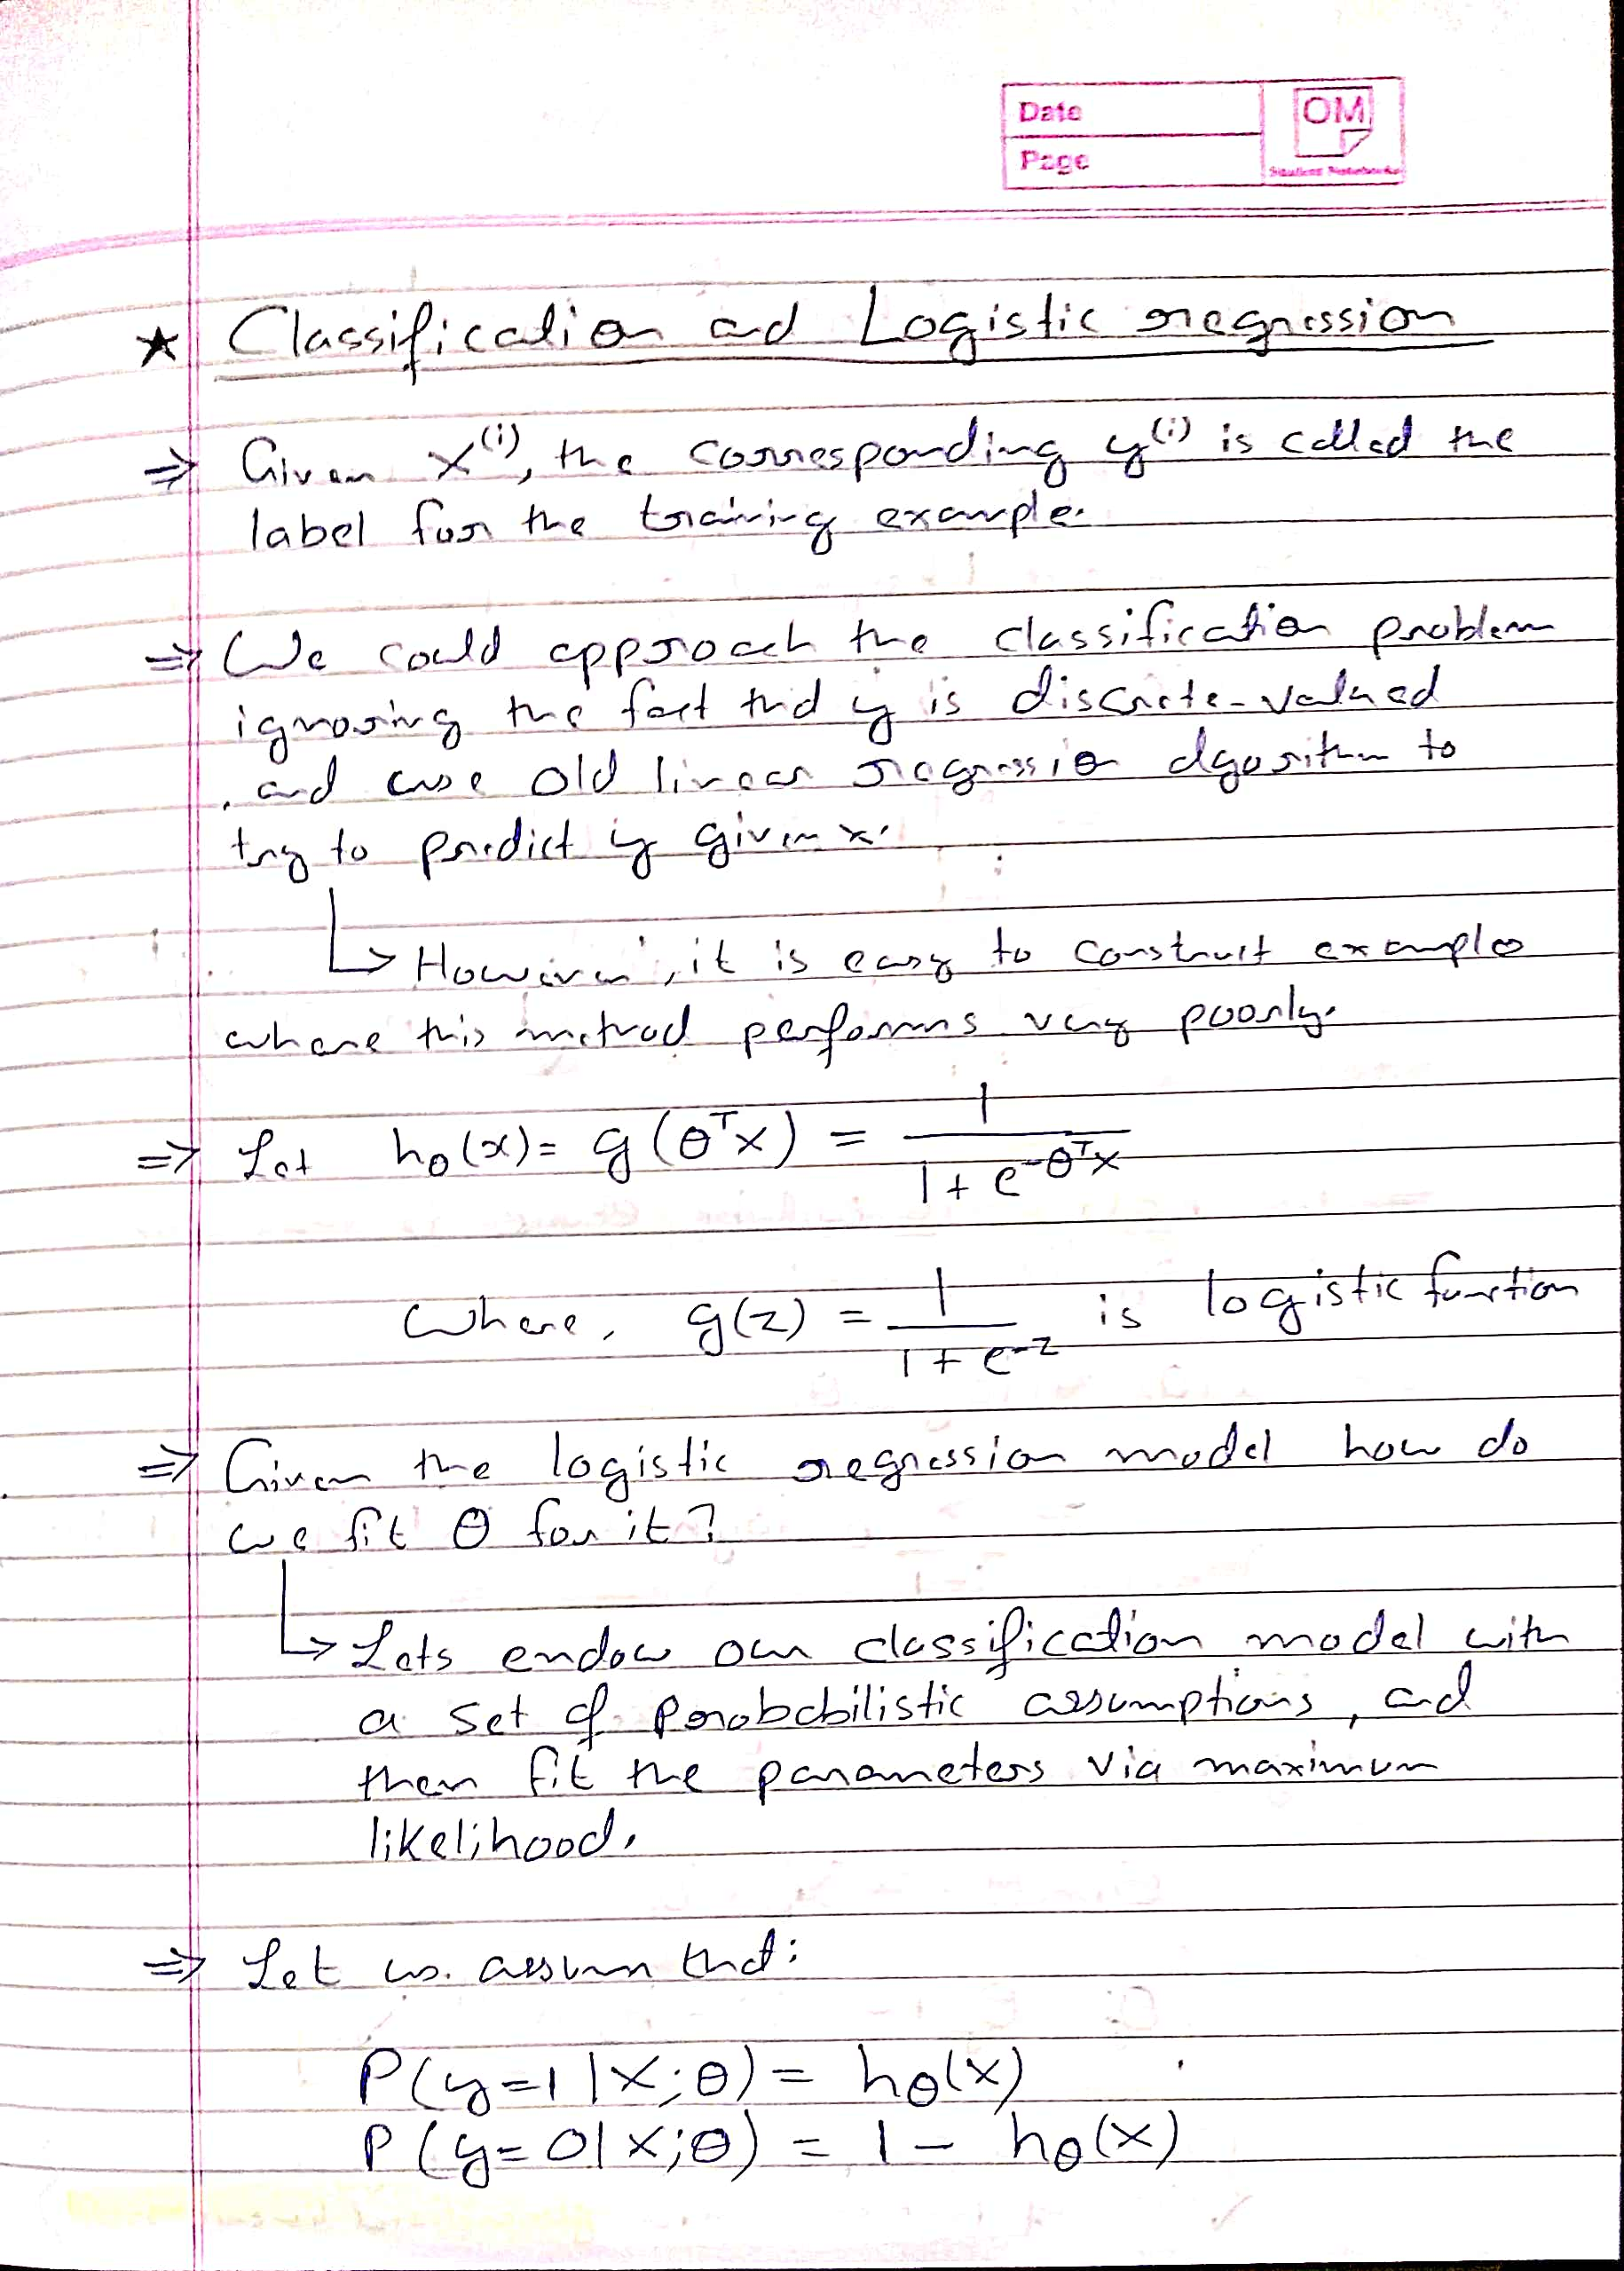 Date
Page
OM
Student Notebooks
★ Classification and Logistic regression
⇒ Given x⁽ⁱ⁾, the corresponding y⁽ⁱ⁾ is called the
label for the training example.
⇒ We could approach the classification problem
ignoring the fact that y is discrete-valued
, and use old linear regression algorithm to
try to predict y given x.
↳ However, it is easy to construct example
where this method performs very poorly.
⇒ Let hθ(x) = g(θᵀx) = 1 / (1 + e^(-θᵀx))
Where, g(z) = 1 / (1 + e^(-z)) is logistic function
⇒ Given the logistic regression model how do
we fit θ for it?
↳ Lets endow our classification model with
a set of probabilistic assumptions, and
then fit the parameters via maximum
likelihood.
⇒ Let us assum that:
P(y=1|x;θ) = hθ(x)
P(y=0|x;θ) = 1 - hθ(x)